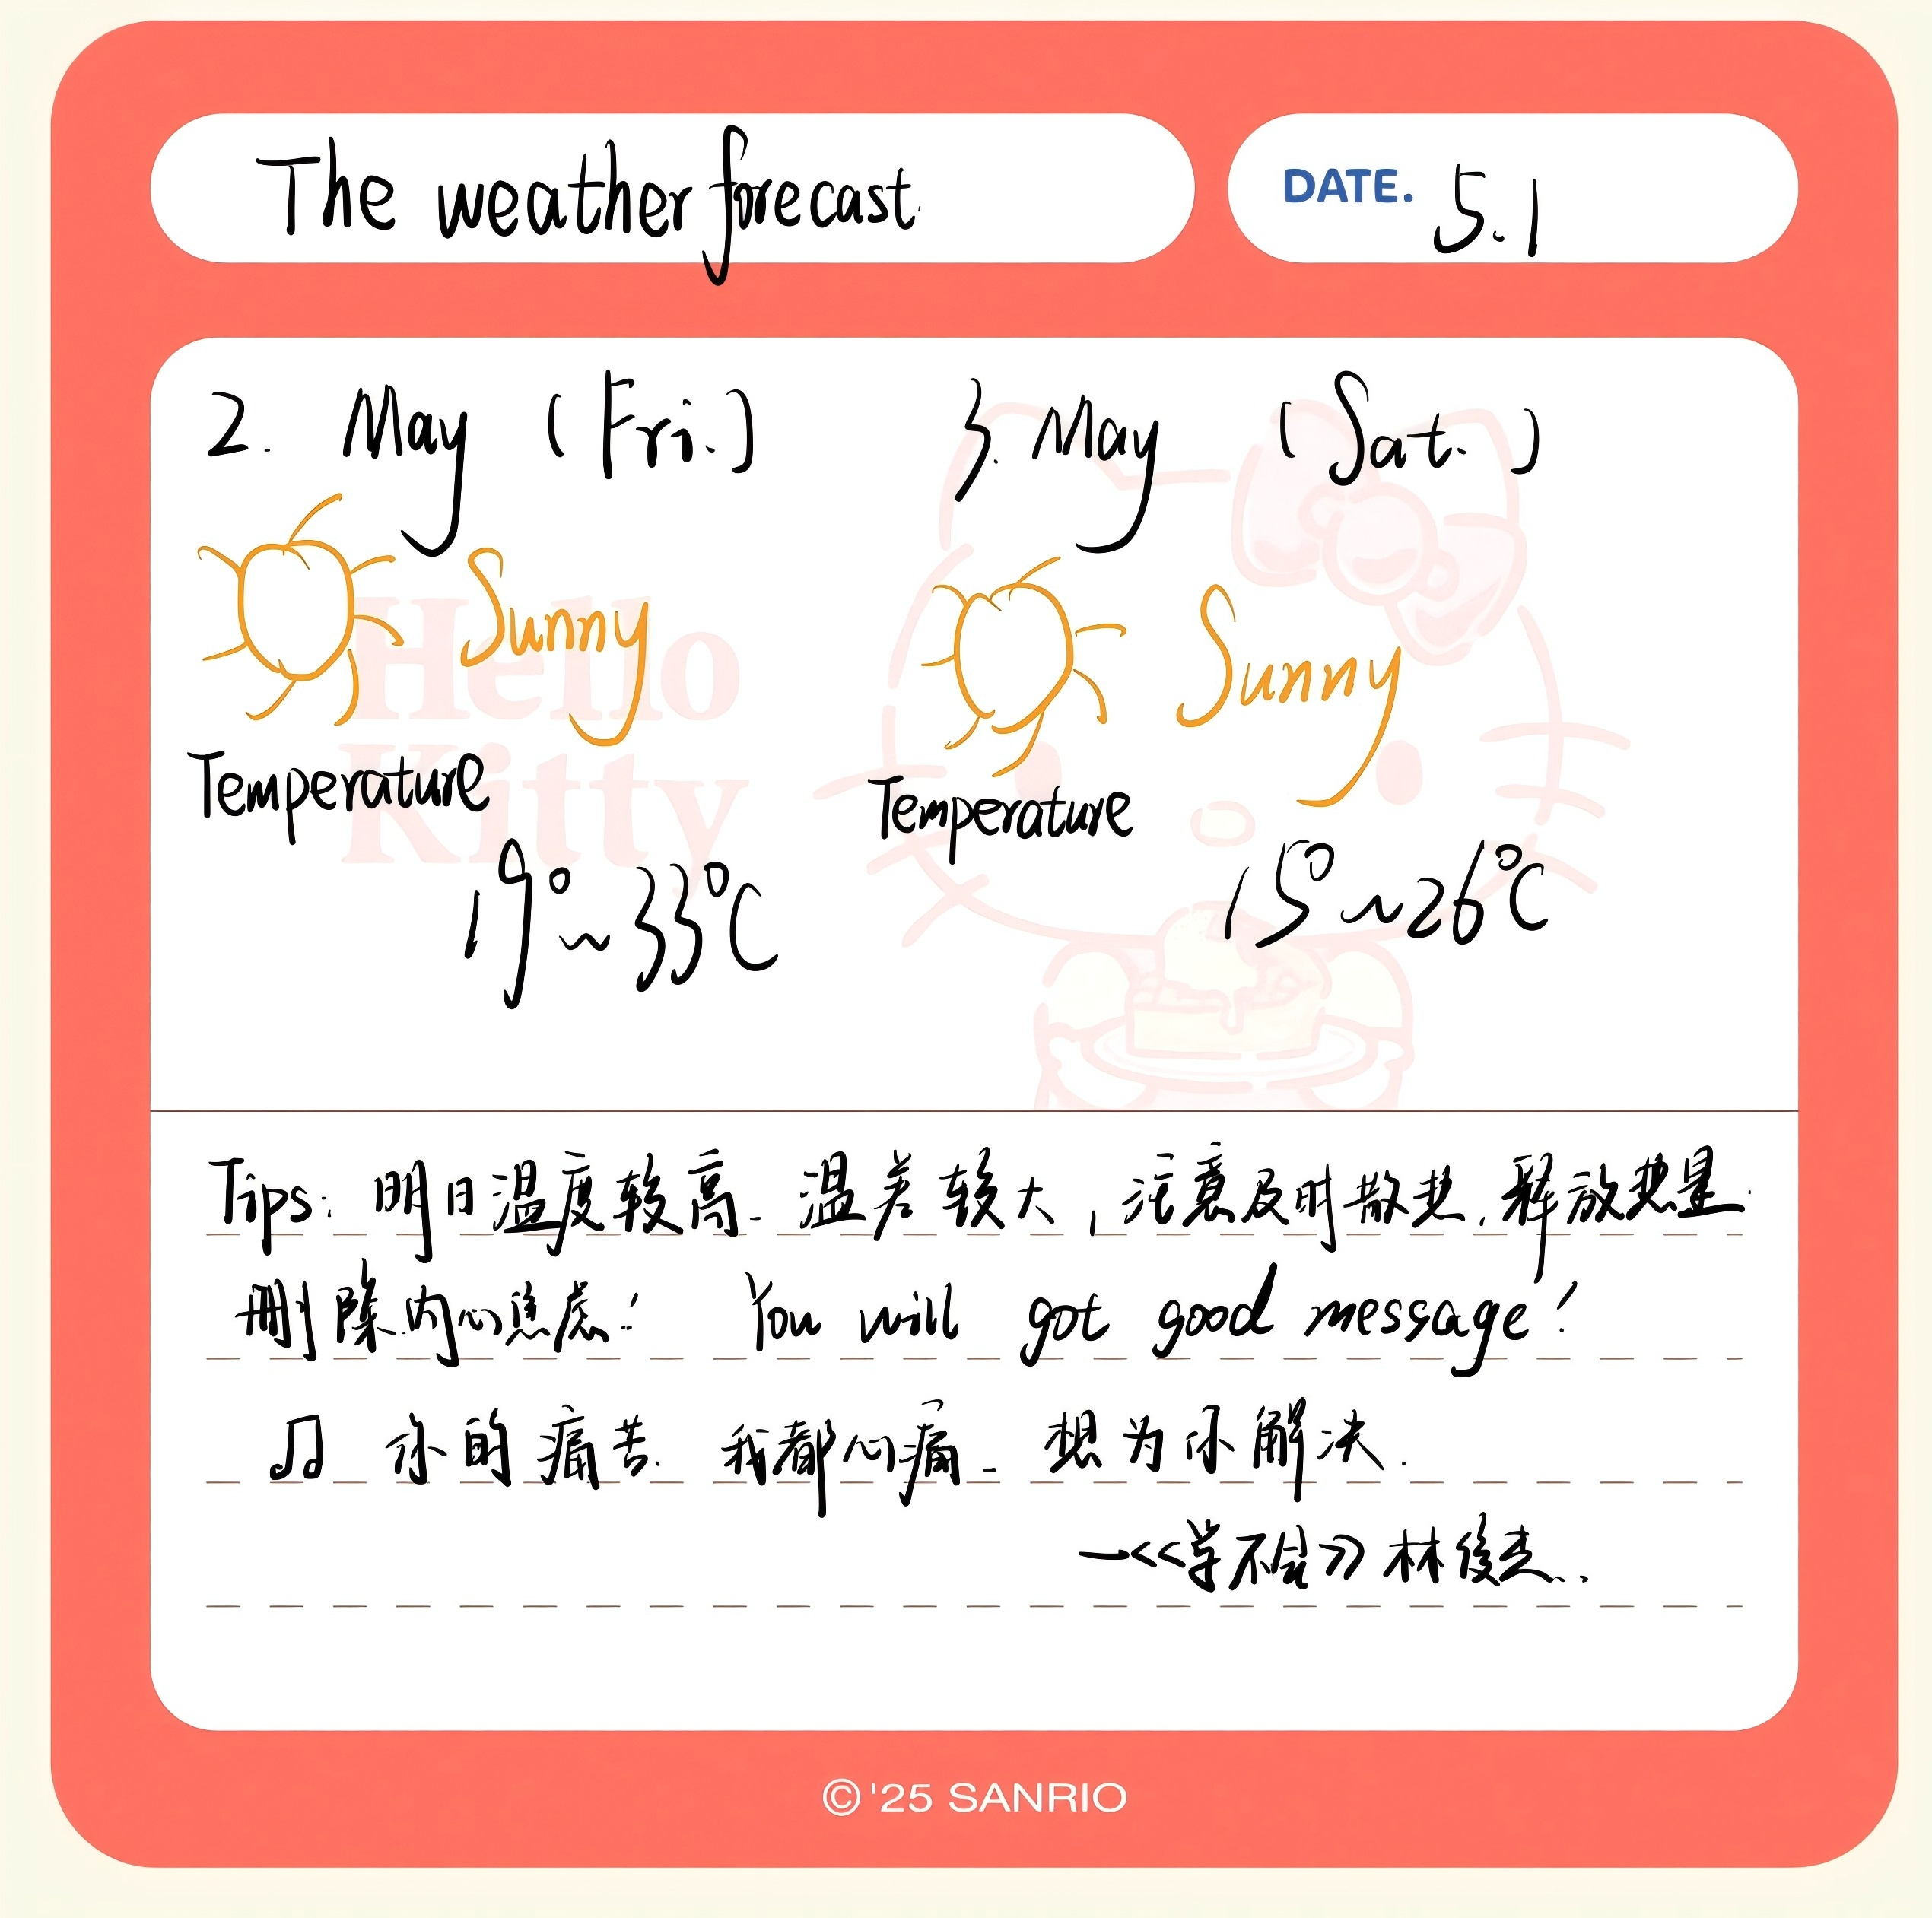 The weather forecast.
DATE. 5.1
2. May (Fri.)
3. May (Sat.)
Sunny
Sunny
Hello
Kitty
Temperature
19°~33°C
Temperature
15°~26°C
Tips: 明日温度较高. 温差较大, 注意及时散热. 释放热量.
删除内心焦虑! You will got good message!
♫ 你的痛苦. 我都心痛. 想为你解决.
—<<学不会>> 林俊杰..
©'25 SANRIO